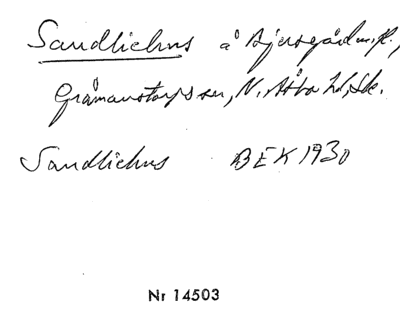 Sandlichus å Bjersgård m.fl.,
Gråmanstorps sn, N. Åsbo hd, Sk.
Sandlichus BEK 1930
Nr 14503